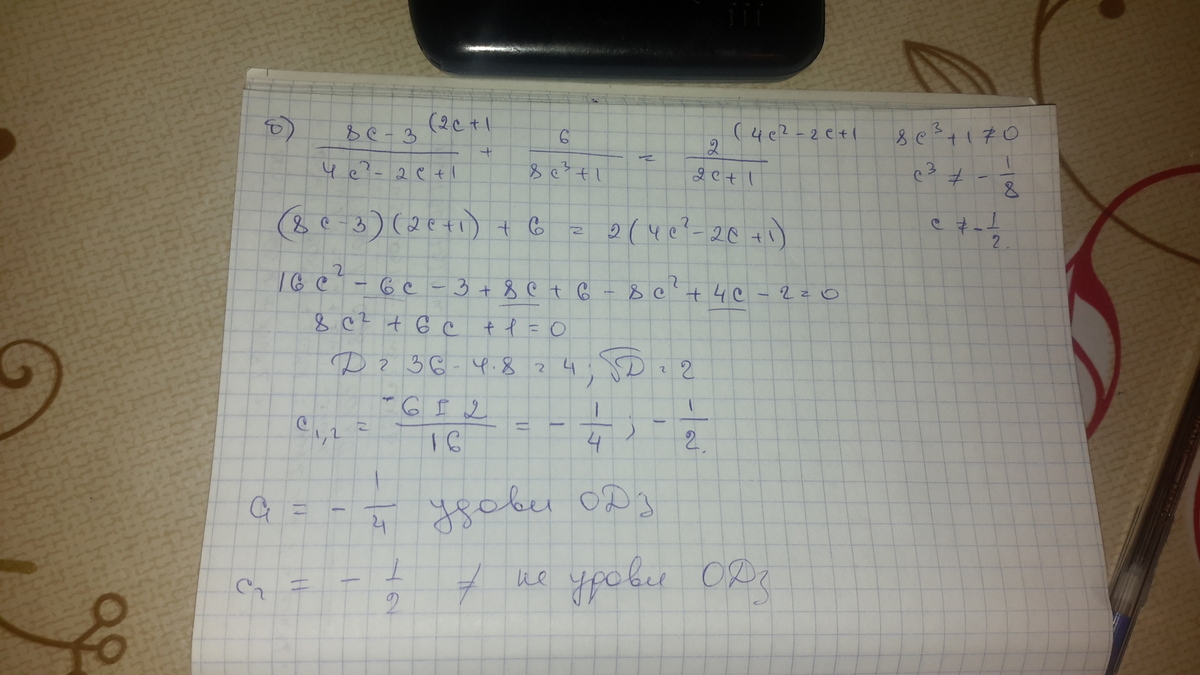 б) (8c-3)/(4c²-2c+1) (2c+1 + 6/(8c³+1) = 2/(2c+1) (4c²-2c+1 8c³+1≠0
c³ ≠ -1/8
(8c-3)(2c+1) + 6 = 2(4c²-2c+1) c ≠ -1/2.
16c² - 6c - 3 + 8c + 6 - 8c² + 4c - 2 = 0
8c² + 6c + 1 = 0
D = 36 - 4·8 = 4; √D = 2
c₁,₂ = (-6 ± 2)/16 = -1/4; -1/2.
c₁ = -1/4 удовл ОДЗ
c₂ = -1/2 ≠ не удовл ОДЗ